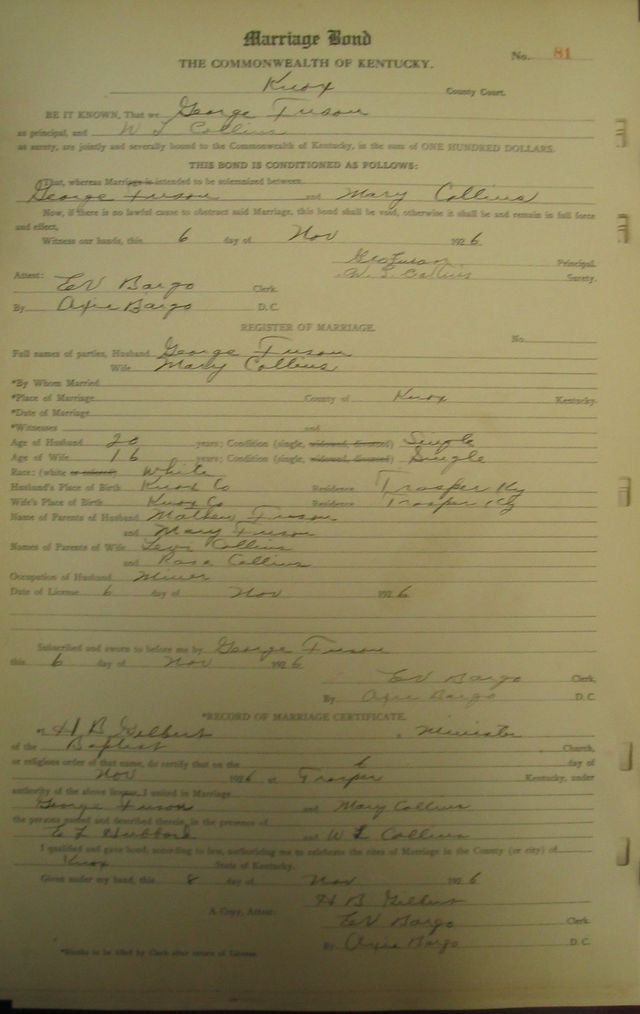 Marriage Bond
No. 81
THE COMMONWEALTH OF KENTUCKY.
Knox County Court.
BE IT KNOWN, That we George Fuson
as principal, and W L Collins
as surety, are jointly and severally bound to the Commonwealth of Kentucky, in the sum of ONE HUNDRED DOLLARS.
THIS BOND IS CONDITIONED AS FOLLOWS:
That, whereas Marriage is intended to be solemnized between
George Fuson and Mary Collins
Now, if there is no lawful cause to obstruct said Marriage, this bond shall be void, otherwise it shall be and remain in full force
and effect.
Witness our hands, this 6 day of Nov 1926.
Geo Fuson Principal.
W. L. Collins Surety.
Attest:
EV Bargo Clerk.
By Oxie Bargo D.C.
REGISTER OF MARRIAGE.
No.
Full names of parties, Husband George Fuson
Wife Mary Collins
*By Whom Married
*Place of Marriage County of Knox Kentucky
*Date of Marriage
*Witnesses and
Age of Husband 20 years; Condition (single, widowed, divorced) Single
Age of Wife 16 years; Condition (single, widowed, divorced) Single
Race: (white or colored) White
Husband's Place of Birth Knox Co Residence Trosper Ky
Wife's Place of Birth Knox Co Residence Trosper Ky
Name of Parents of Husband Mathew Fuson
and Mary Fuson
Names of Parents of Wife Levi Collins
and Rosa Collins
Occupation of Husband Miner
Date of License 6 day of Nov 1926.
Subscribed and sworn to before me by George Fuson
this 6 day of Nov 1926
EV Bargo Clerk,
By Oxie Bargo D.C.
*RECORD OF MARRIAGE CERTIFICATE.
H B Gilbert, a Minister
of the Baptist Church,
or religious order of that name, do certify that on the 6 day of
Nov 1926 at Trosper Kentucky, under
authority of the above license, I united in Marriage
George Fuson and Mary Collins
the persons named and described therein, in the presence of
C L Hubbard and W L Collins
I qualified and gave bond, according to law, authorizing me to celebrate the rites of Marriage in the County (or city) of
Knox State of Kentucky.
Given under my hand, this 8 day of Nov 1926
H B Gilbert
A Copy, Attest: EV Bargo Clerk
By Oxie Bargo D.C.
*Blanks to be filled by Clerk after return of License.